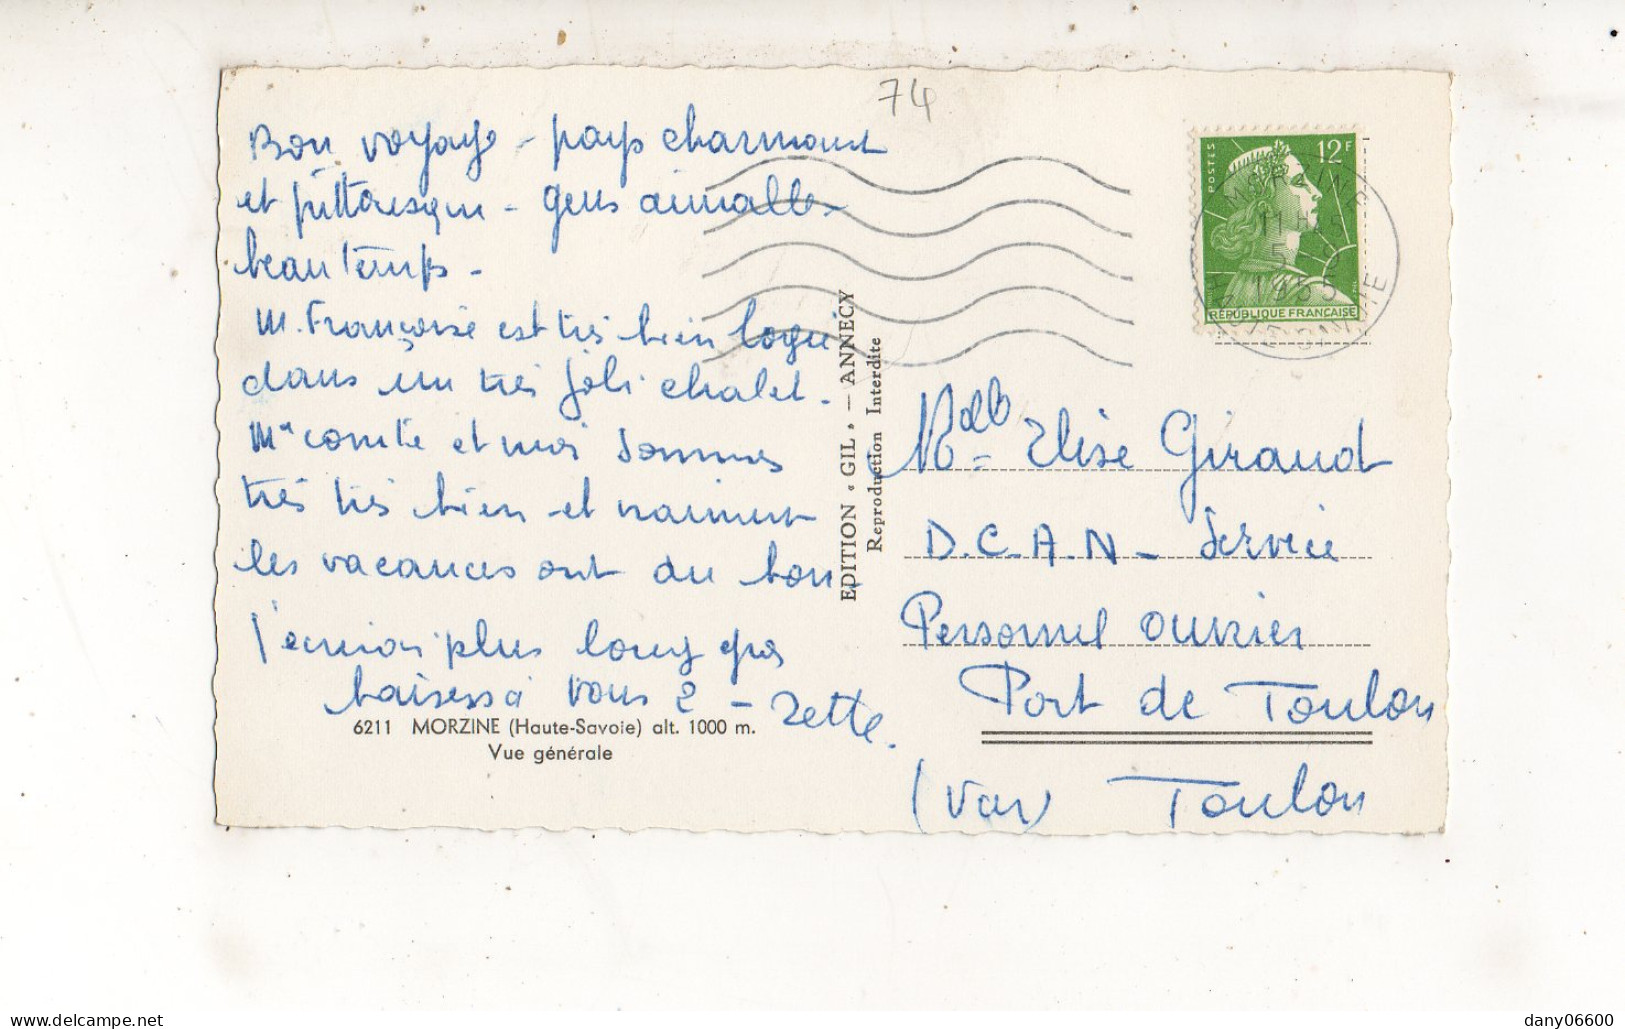 74
Bon voyage - pays charmant
et pittoresque - gens aimables
beau temps -
M. Françoise est très bien logée
dans un très joli chalet.
Mme comte et moi sommes
très très bien et vraiment
les vacances ont du bon -
J'envoi plus long
baisers à vous 2 - Zette.
6211 MORZINE (Haute-Savoie) alt. 1000 m.
Vue générale
EDITION « GIL » — ANNECY
Reproduction Interdite
POSTES
12F
RÉPUBLIQUE FRANÇAISE
MORZINE
1955
HAUTE SAVOIE
Mdlle Elise Giraud
D.C.A.N - Service
Personnel ouvrier
Port de Toulon
(Var) Toulon
delcampe.net
dany06600